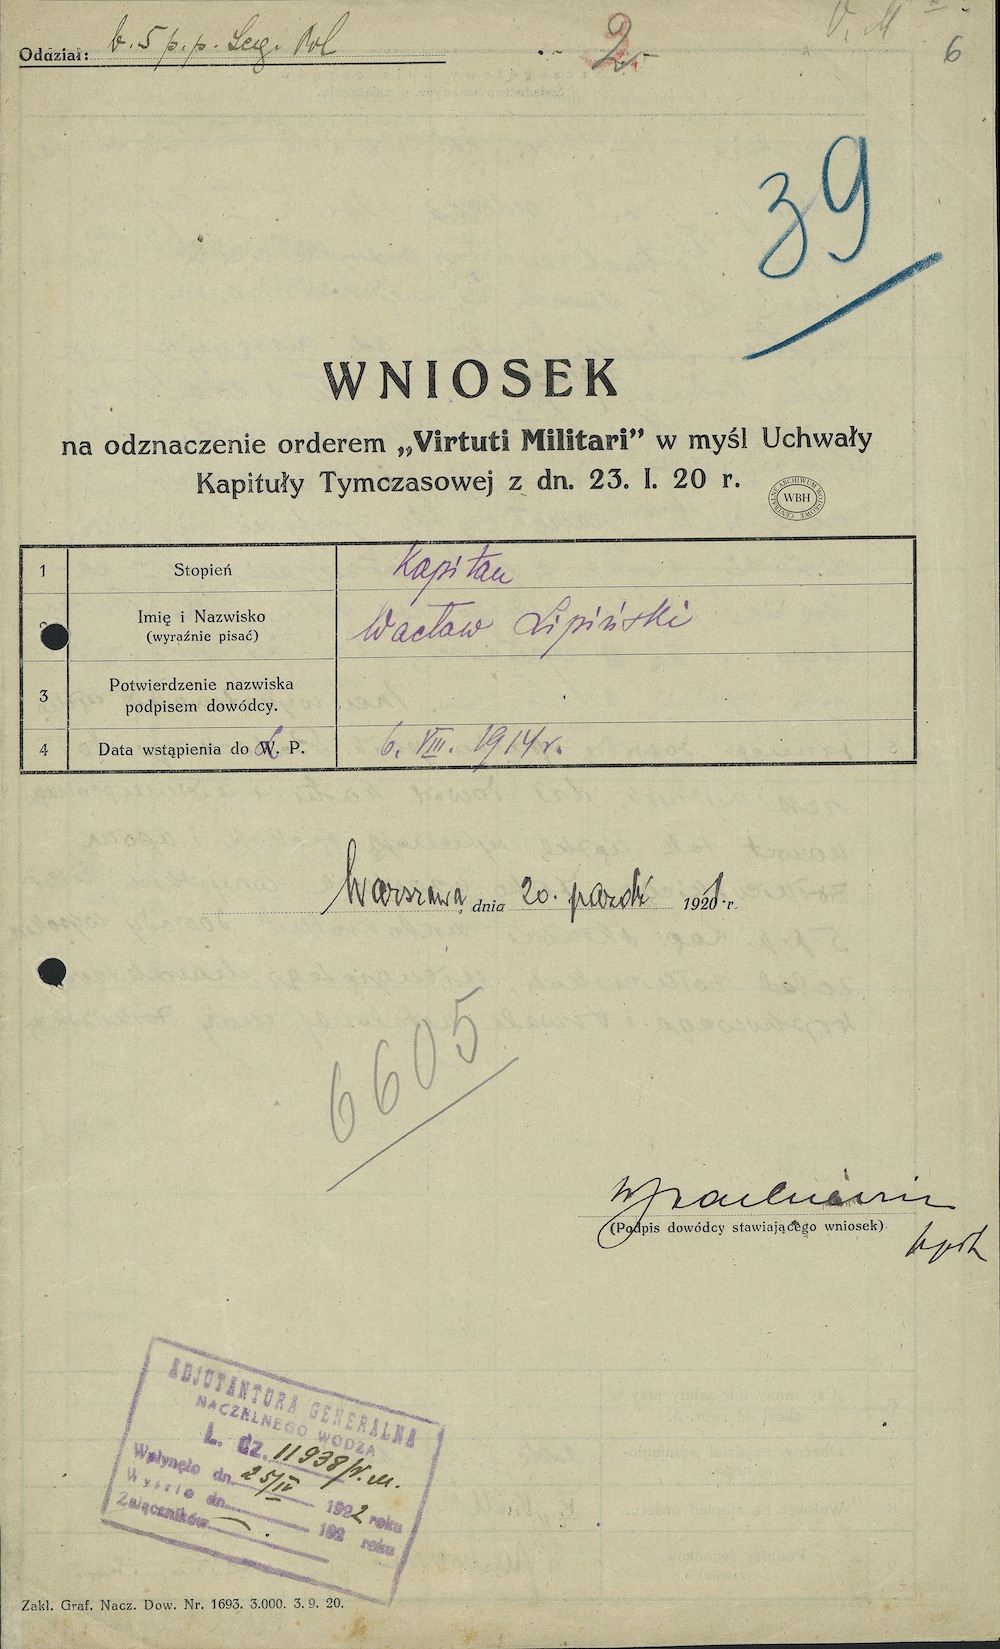 V. M
6
Oddział: b. 5 p.p. Leg. Pol
2.
39
WNIOSEK
na odznaczenie orderem „Virtuti Militari” w myśl Uchwały
Kapituły Tymczasowej z dn. 23. I. 20 r.
CENTRALNE ARCHIWUM WOJSKOWE
WBH
1 Stopień Kapitan
2 Imię i Nazwisko Wacław Lipiński
(wyraźnie pisać)
3 Potwierdzenie nazwiska
podpisem dowódcy.
4 Data wstąpienia do L. P. 6. VIII. 1914 r.
Warszawa, dnia 20. paźdź 1921 r.
6605
(Podpis dowódcy stawiającego wniosek)
ADJUTANTURA GENERALNA
NACZELNEGO WODZA
L. dz. 11938/V.M.
Wpłynęło dn. 25/IV 1922 roku
Wyszło dn. 192 roku
Załączników — .
Zakł. Graf. Nacz. Dow. Nr. 1693. 3.000. 3. 9. 20.